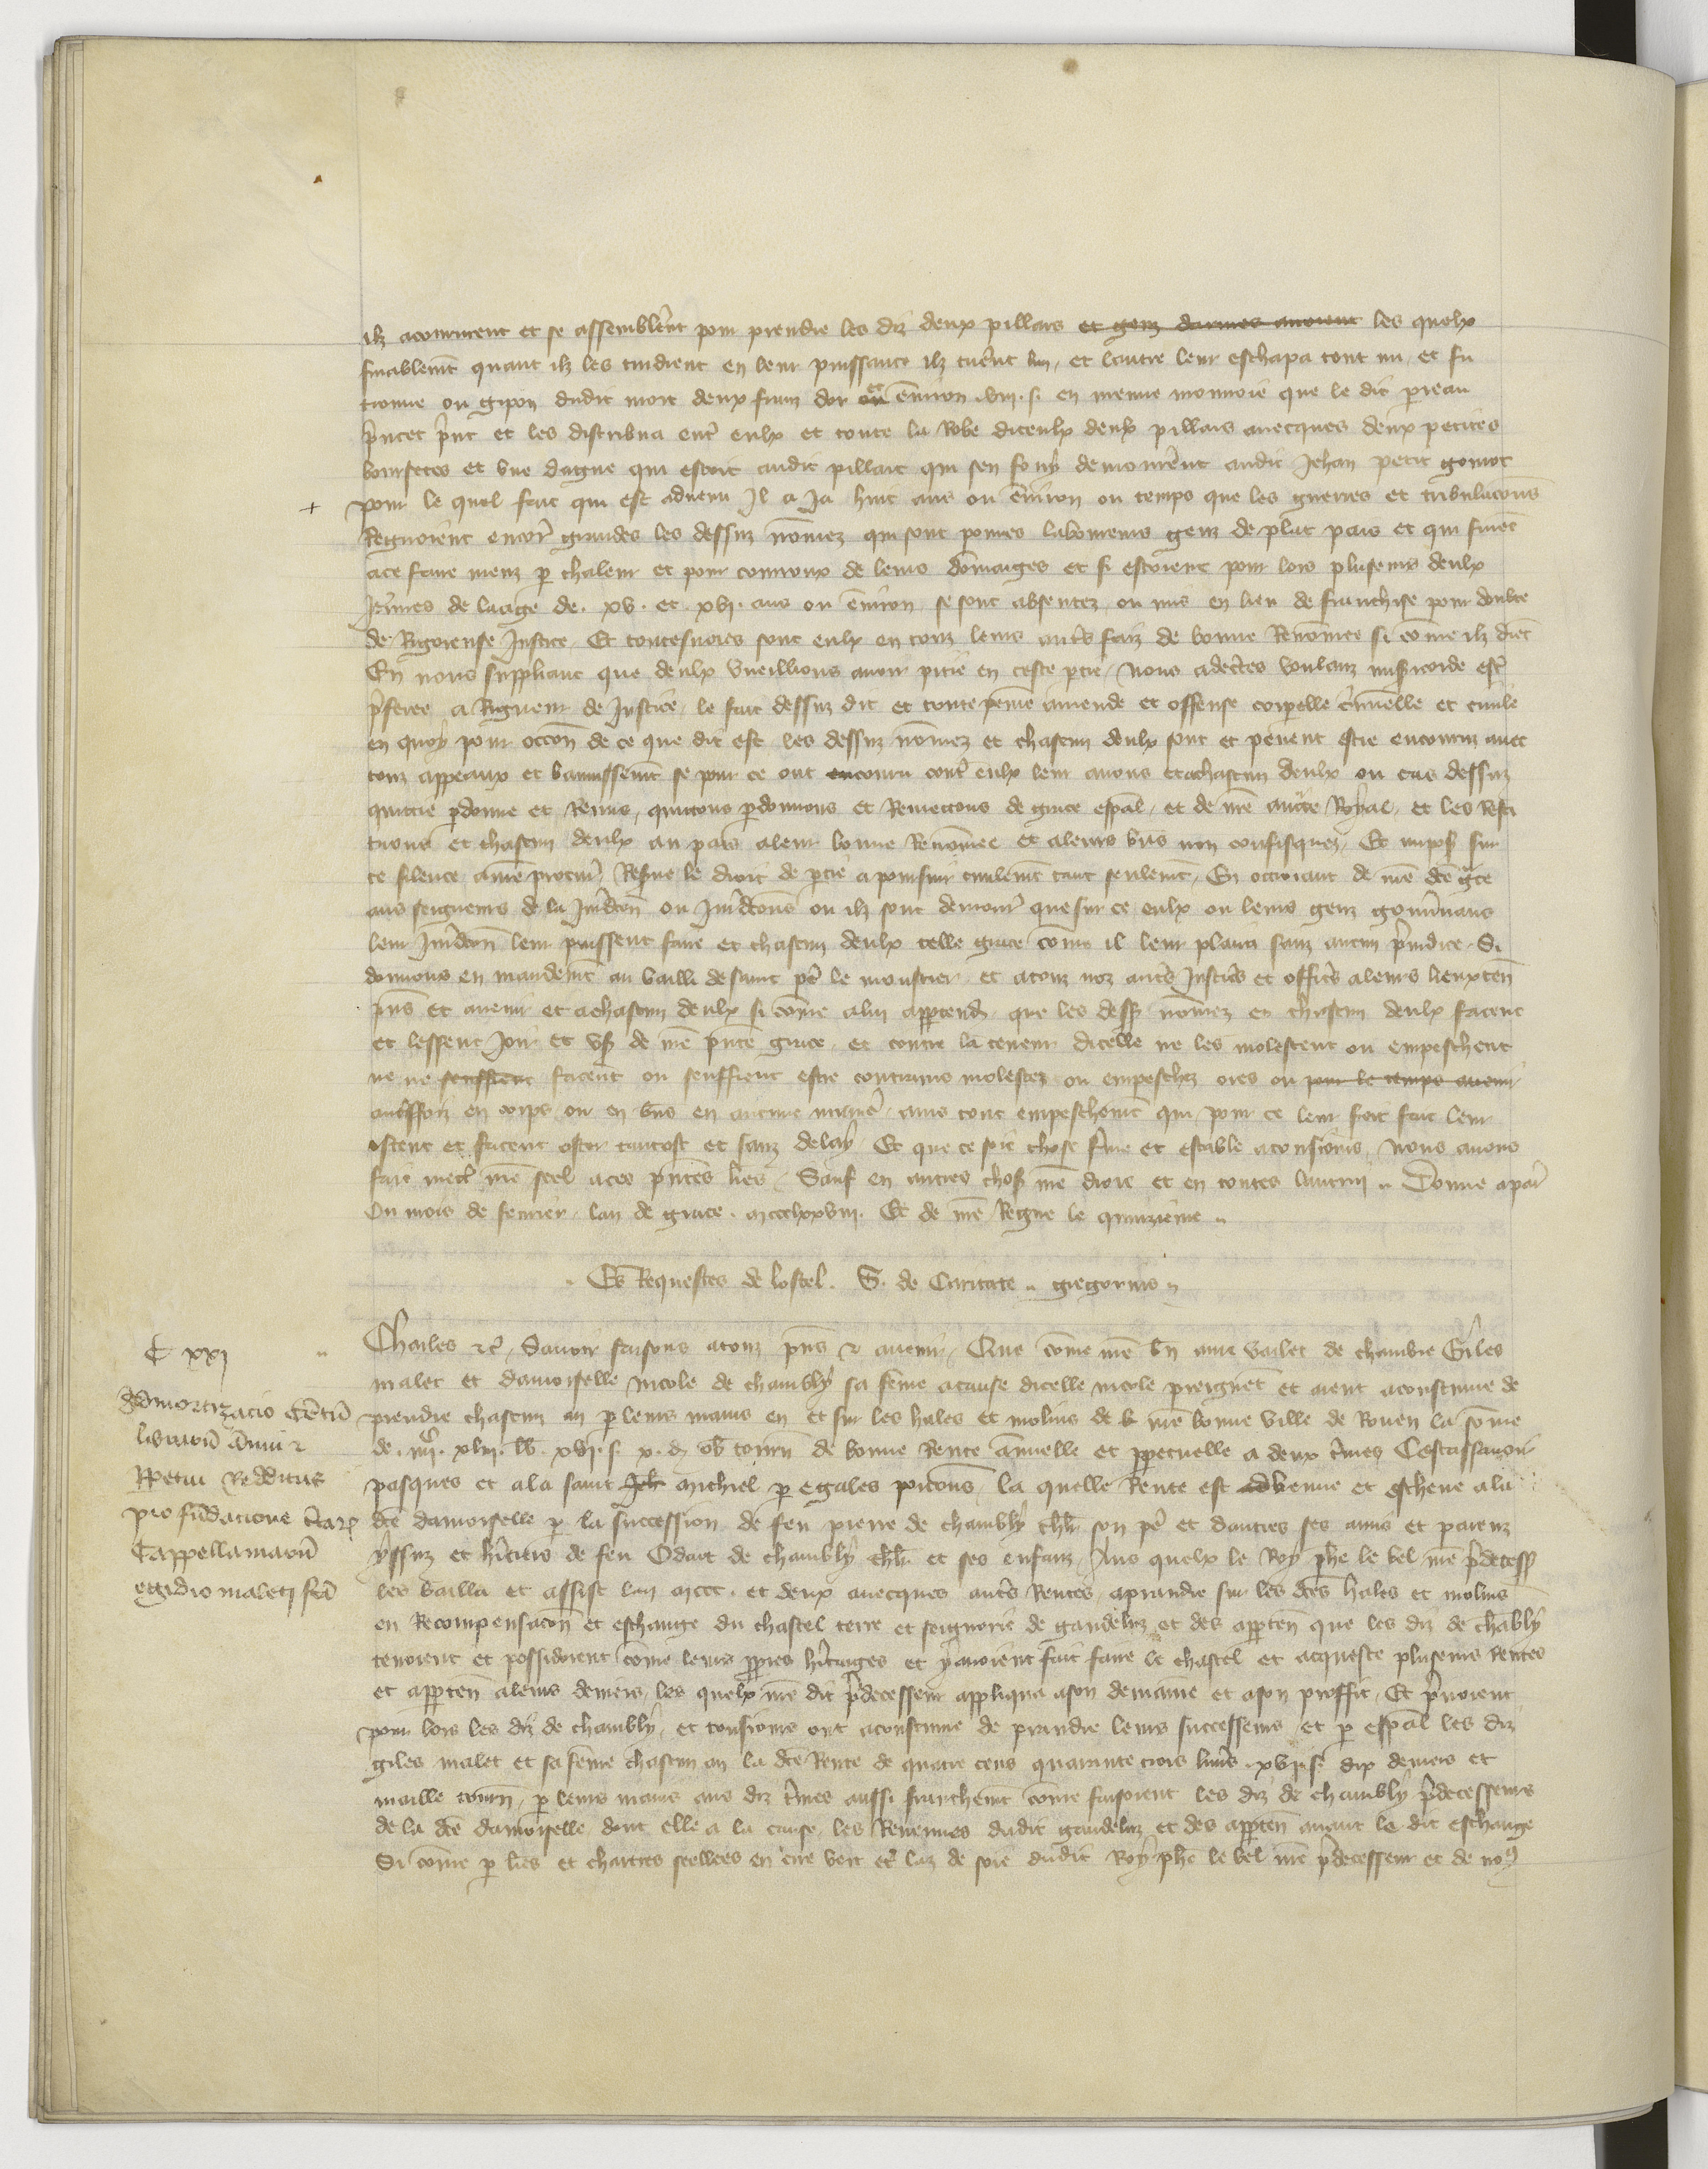 ilz acoururent et se assemblerẽt pour prendre les diz deux pillars et genz darmes auoient les quelx
finablemẽt quant ilz les tindrent en leur puissance ilz tuerẽt lun, et lautre leur eschapa tout nu, et fu
trouue ou gipon dudit mort deux frans dor et enuiron .viii. s. en menue monnoie que le dit
prist et les distribua entr̃ eulx et toute la Robe diceulx deux pillars auecques deux petites
boursetes et vne dague qui estoit audit pillart qui sen fouy demourerẽt audit Jehan petit
+ pour le quel fait qui est aduenu Il a Ja huit ans ou enuiron ou temps que les guerres et tribulacons
Regnoient encor̃ grandes les dessuz nõmez qui sont poures laboureurs genz de plat pais et qui furẽt
ace faire meuz p chaleur et pour courroux de leurs dõmaiges et si estoient pour lors pluseurs deulx
Jeunes de laage de .xv. et .xvi. ans ou enuiron se sont absentez ou mis en lieu de franchise pour doubte
de Rigoreuse Justice Et toutesuoies sont eulx en touz leurs autr̃s faiz de bonne Renõmee si cõme ilz diẽt
En nous suppliant que deulx vueillions auoir pitie en ceste ptie, Nous adecertes voulanz misericorde estr̃
p̃feree a Rigueur de Justice, le fait dessuz dit et toute peine amende et offense corporelle criminelle et ciuile
en quoy pour occõn de ce que dit est les dessuz nõmez et chascun deulx sont et peuent estre encouruz auec
touz appeaux et bannissemẽt se pour ce ont encouru contr̃ eulx leur auons et achascun deulx ou cas dessuz
quictie pdonne et Remis, quictons pdonnons et Remectons de grace esp̃al, et de nr̃e auctte Royal, et les Resti
tuons et chascun deulx au pais aleur bonne Renõmee et aleurs biẽs non confisquez, Et imposõs sur
ce silence anr̃e procur̃, Reserue le droit de ptie a poursuir ciuilemẽt tant seulemẽt, En octroiant de nr̃e dc̃e grc̃e
aus seigneurs de la Juridic̃on ou Juridic̃ons ou ilz sont demour̃ que sur ce eulx ou leurs genz gouũnans
leur Juridic̃on leur puissent faire et chascun deulx telle grace cõme il leur plaira sanz aucun p̃iudice. Si
donnons en mandemẽt au bailli de saint pr̃e le moustier, et atouz noz autr̃s Justic̃s et offic̃s aleurs lieuxten̄
p̃ns et auenir et achascun deulx si cõme alui appartendra, que les dessuz nõmez et chascun deulx facent
et lessent Joir et vser de nr̃e p̃nte grace, et contre la teneur dicelle ne les molestent ou empeschent
ne ne seuffrent facent ou seuffrent estre contrains molestez ou empeschez ores ou pour le temps auenir
autr̃ffoiz en corps ou en biẽs en aucune manier̃, ains tout empeschemẽt qui pour ce leur seroit fait leur
ostent et facent oster tantost et sanz delay, Et que ce soit chose ferme et estable atousiours, Nous auons
fait mectr̃ nr̃e seel aces p̃ntes lr̃es, Sauf en autres choses nr̃e droit et en toutes lautrui. Donne aparis
Ou mois de feurier, lan de grace .mccclxxviii. Et de nr̃e Regne le quinzieme.
Es Requestes de lostel. S. de Caritate. gregorius
C xxj
Admortizacio Cẽtũ
librarũ ãnui &
ppetui Redditus
pro fũdacione c̃tarz
Cappellaniarũ
egidio maleti fc̃a
Charles &c̃, Sauoir faisons atouz p̃ns & auenir, Que cõme nr̃e bn̄ ame varlet de chambre Giles
malet et damoiselle nicole de chambly sa fẽme acause dicelle nicole preignẽt et aient acoustume de
prendre chascun an p leurs mains en et sur les hales et molins de nr̃e bonne ville de Rouen la sõme
de .iiiic. xliii. lb. xvii. s. x. d. ob. tourñ de bonne Rente ãnuelle et ppetuelle a deux termes Cestassauoir
pasques et ala saint michiel p egales porcõns, la quelle Rente est venue et escheue ala
dc̃e damoiselle p la succession de feu pierre de chambly chlr̃ son pr̃e et dautres ses amis et parenz
yssuz et hr̃itiers de feu Odart de chambly chlr̃ et ses enfanz, Aus quelx le Roy phẽ le bel nr̃e p̃decess
les bailla et assist lan mccc. et deux auecques autr̃s Rentes aprandre sur les dc̃es hales et molins
en Recompensacõn et eschange du chastel terre et seignorie de gandeluz et des appartẽn que les diz de chãbly
tenoient et possidoient cõme leurs ppres hr̃itaiges et y auoient fait faire le chastel et acqueste pluseurs Rentes
et appartẽn aleurs deniers, les quelx nr̃e dit p̃decesseur appliqua ason demaine et ason proffit, Et p̃noient
pour lors les diz de chambly, et tousiours ont acoustume de prandre leurs successeurs, et p esp̃al les diz
giles malet et sa fẽme chascun an la dc̃e Rente de quatre cens quarante trois liur̃s .xvii. s. dix deniers et
maille tourñ, p leurs mains aus diz termes aussi franchemẽt cõme faisoient les diz de chambly p̃decesseurs
de la dc̃e damoiselle, dont elle a la cause, les Reuenues dudit gandeluz et des appartẽn auant le dit eschange
Si cõme p lr̃es et chartres seellees en cire vert et laz de soie dudit Roy phẽ le bel nr̃e p̃decesseur et de nous